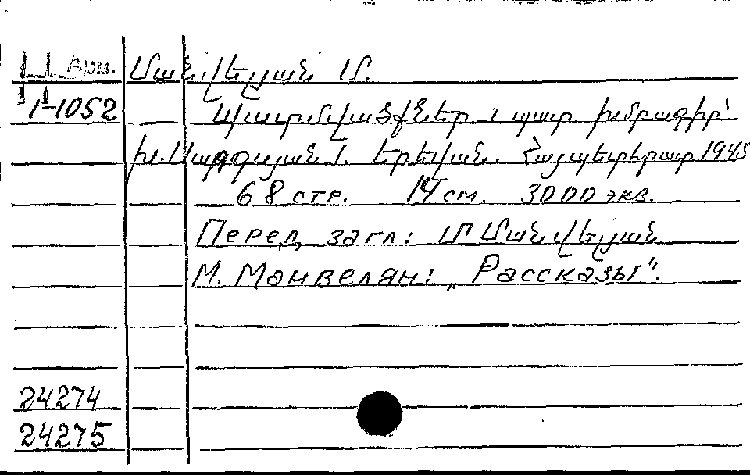 Арм. Մանվելյան Մ.
1-1052 Պատմվածքներ պատ. խմբագիր՝
Սարգսյան Երևան. Հայպետհրատ 1945
68 стр. 14 см. 3000 экз.
Перед загл: Մ Մանվելյան
М. Манвелян: „Рассказы".
24274
24275